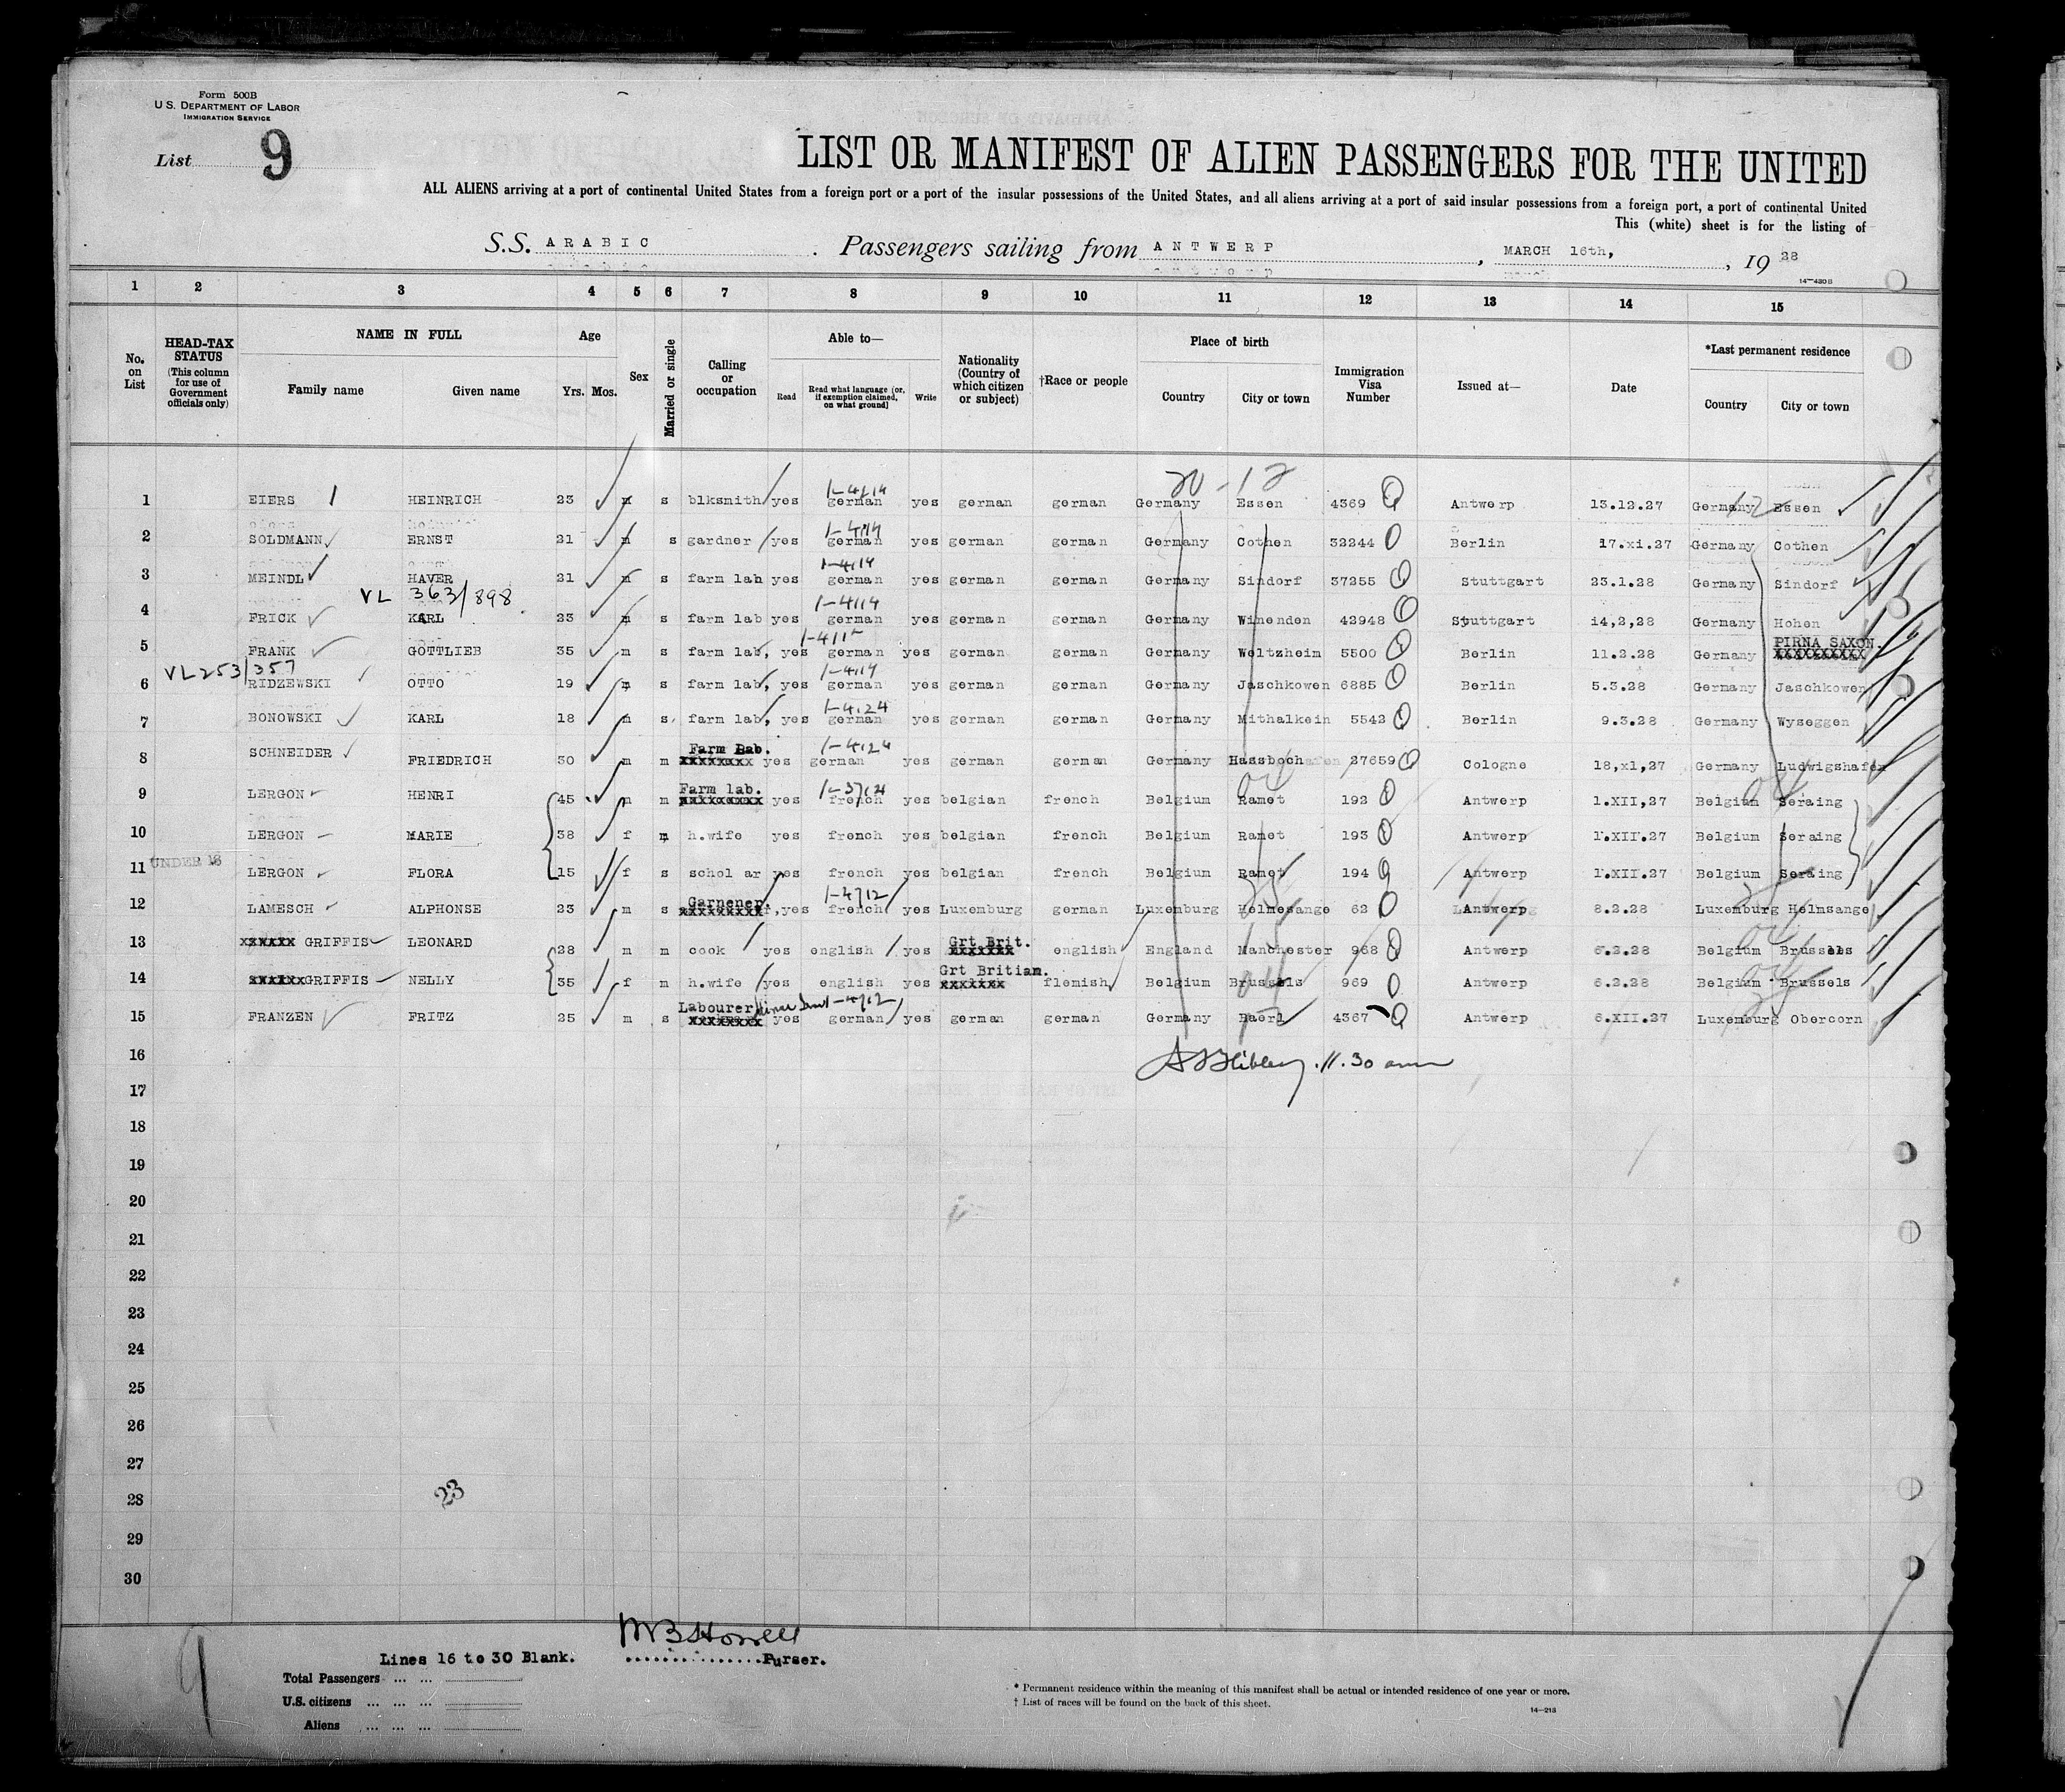 Form 500B
U. S. DEPARTMENT OF LABOR
IMMIGRATION SERVICE
List 9
LIST OR MANIFEST OF ALIEN PASSENGERS FOR THE UNITED
ALL ALIENS arriving at a port of continental United States from a foreign port or a port of the insular possessions of the United States, and all aliens arriving at a port of said insular possessions from a foreign port, a port of continental United
This (white) sheet is for the listing of
S.S. ARABIC . Passengers sailing from ANTWERP , MARCH 16th, , 19 28
14-430B
1 2 3 4 5 6 7 8 9 10 11 12 13 14 15
No. on List HEAD-TAX STATUS (This column for use of Government officials only) NAME IN FULL Family name Given name Age Yrs. Mos. Sex Married or single Calling or occupation Able to— Read Read what language (or, if exemption claimed, on what ground) Write Nationality (Country of which citizen or subject) †Race or people Place of birth Country City or town Immigration Visa Number Issued at— Date *Last permanent residence Country City or town
20 - 12
1-4/14
1 EIERS HEINRICH 23 m s blksmith yes german yes german german Germany Essen 4369 Antwerp 13.12.27 Germany 12 Essen
1-4/14
2 SOLDMANN ERNST 21 m s gardner yes german yes german german Germany Cothen 32244 Berlin 17.xi.27 Germany Cothen
1-4/14
3 MEINDL HAVER 21 m s farm lab yes german yes german german Germany Sindorf 37255 Stuttgart 23.1.28 Germany Sindorf
VL 363/898 1-4/14
4 FRICK KARL 23 m s farm lab yes german yes german german Germany Winenden 42948 Stuttgart 14,2,28 Germany Hohen
PIRNA SAXON.
5 FRANK GOTTLIEB 35 m s farm lab, yes german yes german german Germany Weltzheim 5500 Berlin 11.2.28 Germany XXXXXXXXXX
VL 253/357 1-4/14
6 RIDZEWSKI OTTO 19 m s farm lab, yes german yes german german Germany Jaschkowen 6885 Berlin 5.3.28 Germany Jaschkowen
1-4.24
7 BONOWSKI KARL 18 m s farm lab, yes german yes german german Germany Mithalkein 5542 Berlin 9.3.28 Germany Wyseggen
Farm Lab. 1-4.24
8 SCHNEIDER FRIEDRICH 30 m m xxxxxxxx yes german yes german german Germany Hassboch 27659 Cologne 18,x1,27 Germany Ludwigshafen
Farm lab. 04 04
9 LERGON HENRI 45 m m xxxxxxxxx yes french yes belgian french Belgium Ramet 192 Antwerp 1.XII,27 Belgium Seraing
10 LERGON MARIE 38 f m h.wife yes french yes belgian french Belgium Ramet 193 Antwerp 1.XII.27 Belgium Seraing
UNDER 16
11 LERGON FLORA 15 f s schol ar yes french yes belgian french Belgium Ramet 194 Antwerp 1.XII.27 Belgium Seraing
Garnener 1-4/12
12 LAMESCH ALPHONSE 23 m s xxxxxxxxx,yes french yes Luxemburg german Luxemburg Helmesange 62 Antwerp 8.2.28 Luxemburg Helmsange
Grt Brit.
13 xxxxxx GRIFFIS LEONARD 28 m m cook yes english yes xxxxxxx english England Manchester 968 Antwerp 6.2.28 Belgium Brussels
Grt Britian.
14 xxxxxxGRIFFIS NELLY 35 f m h.wife yes english yes xxxxxxx flemish Belgium Brussels 969 Antwerp 6.2.28 Belgium Brussels
Labourer
15 FRANZEN FRITZ 25 m s xxxxxxxx yes german yes german german Germany Baerl 4367 Antwerp 6.XII.27 Luxemburg Obercorn
16 11.30 am
17
18
19
20
21
22
23
24
25
26
27
23
28
29
30
9
M B Howell
Lines 16 to 30 Blank. ...............Purser.
Total Passengers ... ...
U.S. citizens ... ... ...
Aliens ... ... ...
* Permanent residence within the meaning of this manifest shall be actual or intended residence of one year or more.
† List of races will be found on the back of this sheet.
14-213